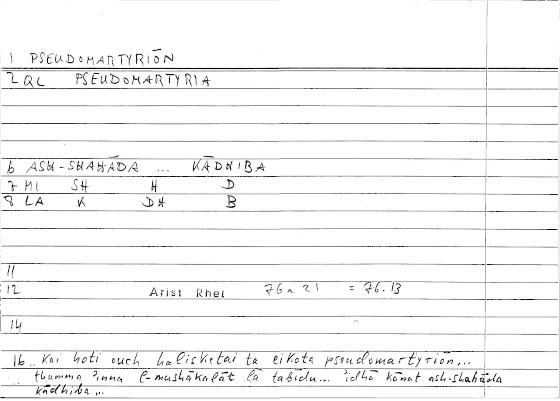 1 PSEUDOMARTYRIŌN
2 QL PSEUDOMARTYRIA
6 ASH-SHAHĀDA ... KĀDHIBA
7 MI SH H D
8 LA K DH B
11
12 Arist Rhet 76a21 = 76.13
14
16 .. Kai hoti ouch halisketai ta eikota pseudomartyriōn...
.. thumma ʾinna l-mushākalāt lā tabīdu... ʾidhā kānat ash-shahāda
kādhiba...